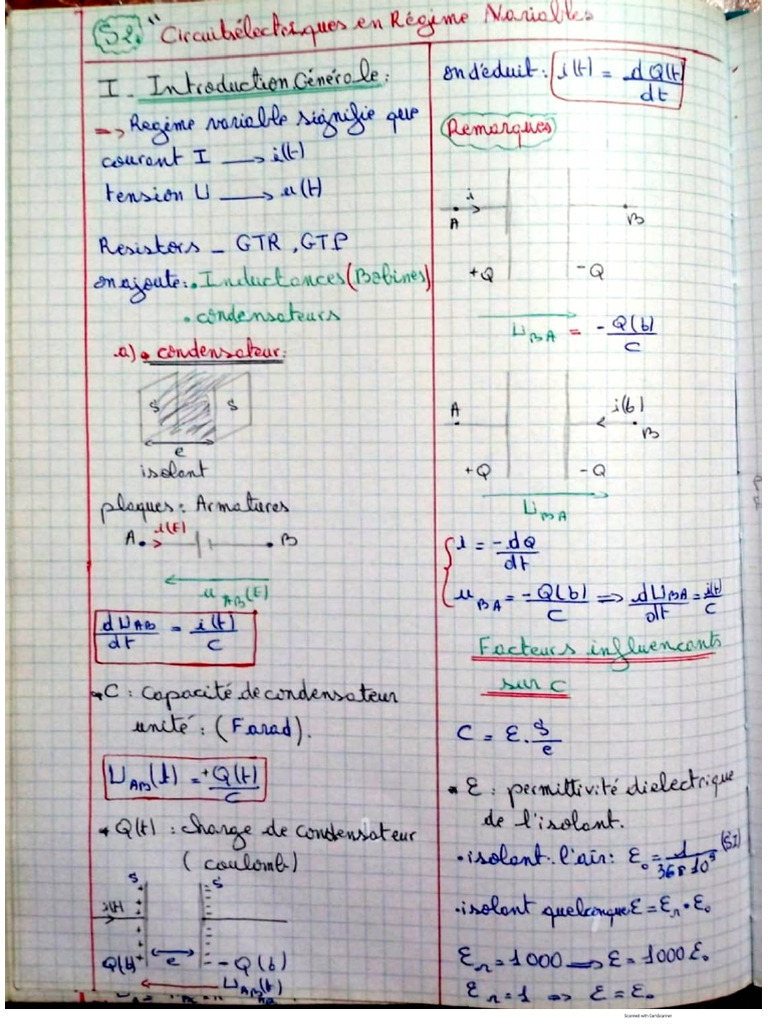 S2. "Circuits électriques en Régime Variables
I - Introduction Générale:
=> Regime variable signifie que
courant I → i(t)
tension U → u(t)
Resistors - GTR, GTP
on ajoute: . Inductances (Bobines)
. condensateurs
a) • condensateur:
S S
e
isolant
plaques: Armatures
i(t)
A B
u AB(t)
dU AB/dt = i(t)/C
C: Capacité de condensateur
unité: (Farad).
U AB(t) = +Q(t)/C
Q(t): charge de condensateur
(coulomb)
S S
i(t)
Q(t) e -Q(t)
U AB(t)
on déduit: i(t) = dQ(t)/dt
Remarques
i
A B
+Q -Q
U BA = -Q(t)/C
A i(t)
B
+Q -Q
U BA
i = -dQ/dt
u BA = -Q(t)/C => dU BA/dt = i(t)/C
Facteurs influencants
sur C
C = ε. S/e
• ε: permittivité dielectrique
de l'isolant.
. isolant: l'air: ε₀ = 1/36π 10⁹ (SI)
. isolant quelconque ε = εr • ε₀
εr = 1000 => ε = 1000 ε₀
εr = 1 => ε = ε₀
Scanned with CamScanner